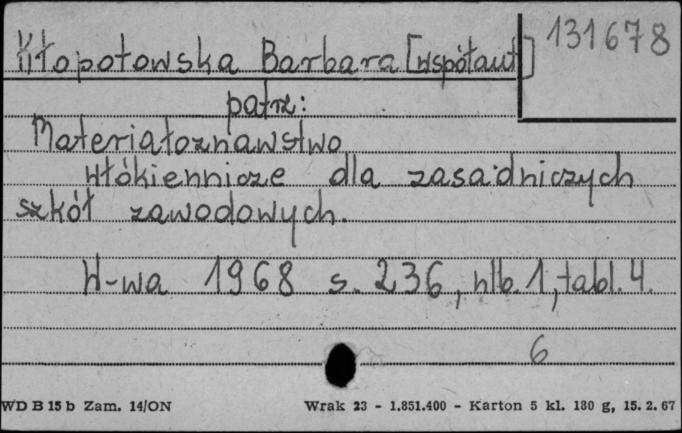 Kłopotowska Barbara [współaut]
131678
patrz:
Materiałoznawstwo
włókiennicze dla zasadniczych
szkół zawodowych.
W-wa 1968 s. 236, nlb. 1, tabl. 4.
6
WD B 15 b Zam. 14/ON Wrak 23 - 1.851.400 - Karton 5 kl. 180 g, 15. 2. 67